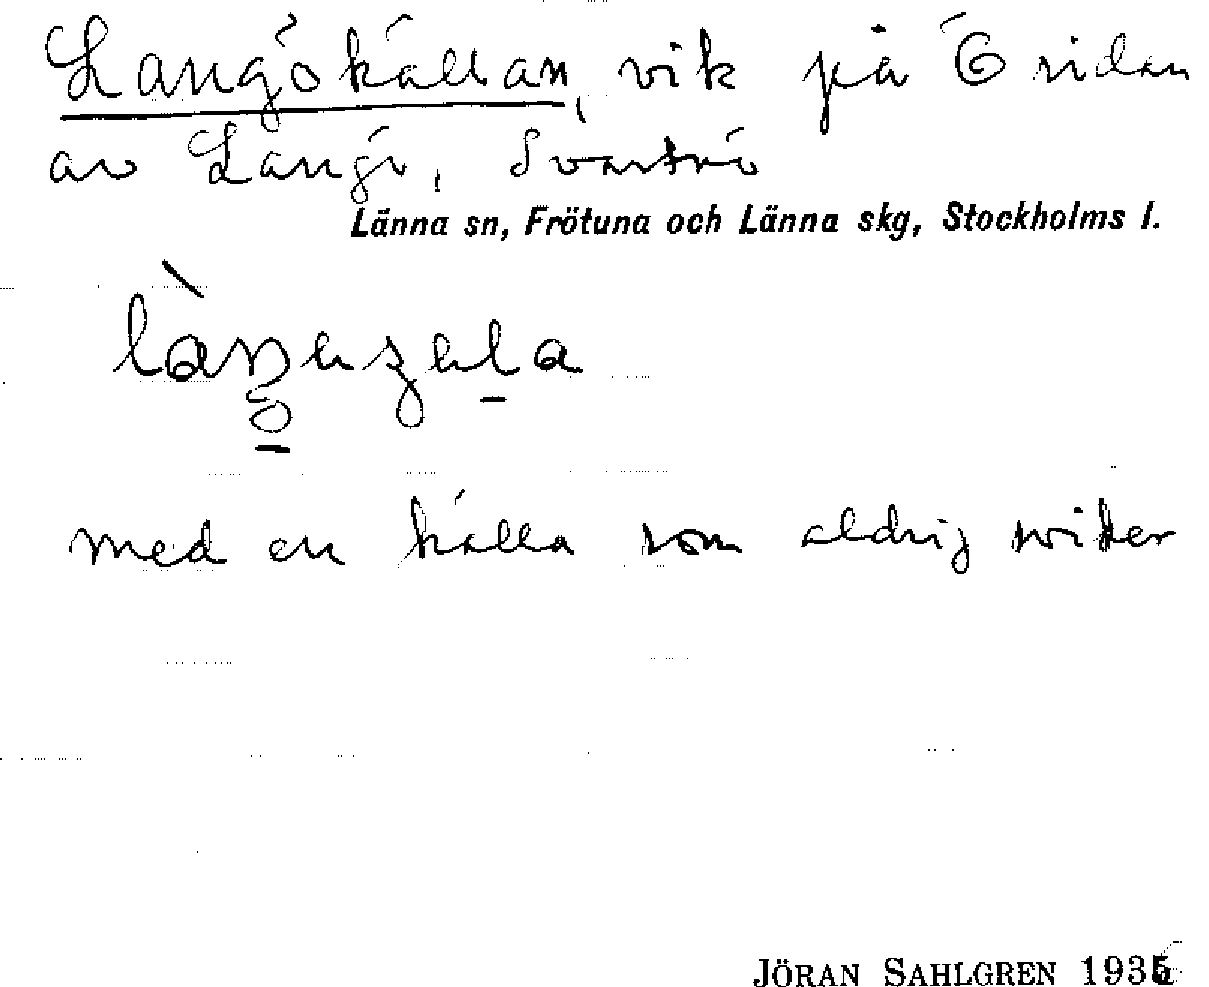 Langökällan, vik på Ö sidan
av Langö, Svartnö
Länna sn, Frötuna och Länna skg, Stockholms l.
med en källa som aldrig sviker
JÖRAN SAHLGREN 1936